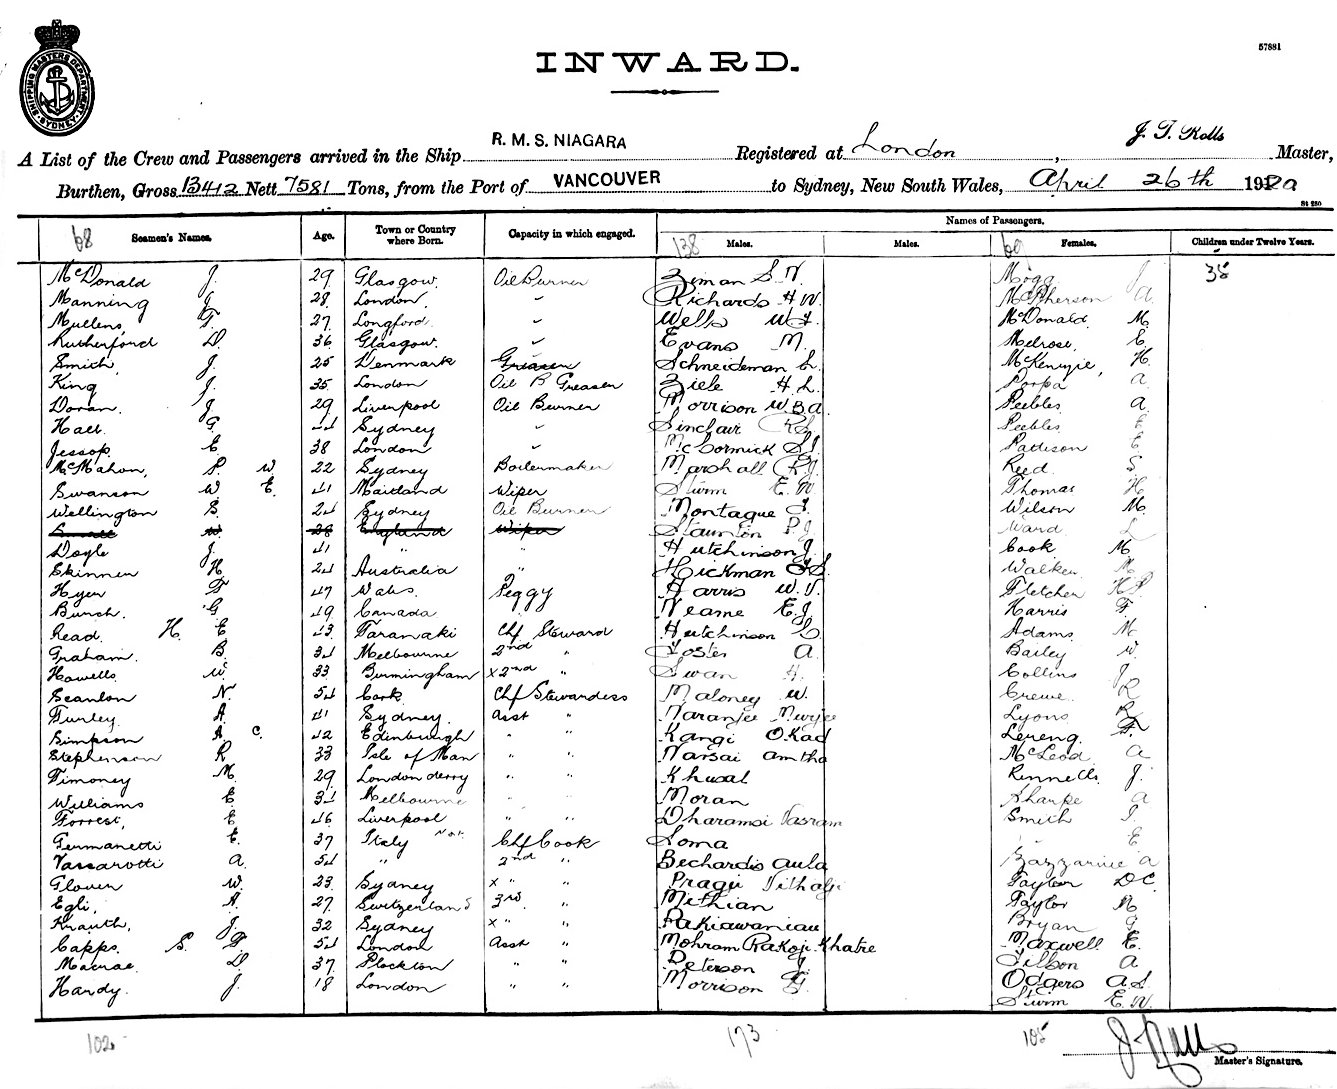 57881
SHIPPING MASTERS DEPARTMENT SYDNEY
INWARD.
A List of the Crew and Passengers arrived in the Ship R. M. S. NIAGARA Registered at London, J. T. Rolls Master,
Burthen, Gross 13412 Nett 7581 Tons, from the Port of VANCOUVER to Sydney, New South Wales, April 26th 1920
St 250
Seamen's Names. Age. Town or Country where Born. Capacity in which engaged. Names of Passengers.
Males. Males. Females. Children under Twelve Years.
68 138 69
McDonald J. 29 Glasgow. Oil Burner Ziman S. N. Mogg J 35
Manning J. 28 London. " Richards H W. McPherson A.
Mullens, T. 27 Longford. " Wells W. J. McDonald M.
Rutherford D. 36 Glasgow. " Evans M. Melrose, E.
Smith, J. 25 Denmark Greaser Schneideman L. McKenzie, H.
King J. 35 London Oil B Greaser Ziele H. L. A.
Doran. J. 29 Liverpool Oil Burner Morrison W B A. Peebles A
Hall G. 24 Sydney " Sinclair R S Peebles E.
Jessop. E. 38 London " McCormick S J Pattison E.
McMahon, P. W. 22 Sydney Boilermaker Marshall Reed S.
Swanson W E. 41 Maitland Wiper Sturm E. W Thomas H
Wellington S. 24 Sydney Oil Burner Montague Wilson M.
W. 28 England Wiper Staunton P. J Ward L
Doyle J. 41 " " Hutchinson J. Cook M
Skinner H 24 Australia " Hickman Walker M
Hyer F 47 Wales. Peggy Harris W. V. Fletcher H P.
Burch. G 49 Canada Neame E. J. Harris F.
Read. H. E 43 Taranaki Chf Steward Hutchinson Adams M.
Graham. B. 34 Melbourne 2nd " Foster A. Bailey W.
Howells W. 33 Birmingham x 2nd " Swan H. Collins J
Scanlon N. 54 Cork Chf Stewardess Maloney W. Crewe R
Furley A. 41 Sydney. Asst " Naranjee Murjee Lyons R
Simpson A C. 42 Edinburgh " " Kangi Okad Lereng. F.
Stephenson R 33 Isle of Man " " Narsai Amtha McLeod A
Timoney M. 29 Londonderry " " Khusal Rennells. J.
Williams E 34 Melbourne " " Moran Sharpe A
Forrest, E 46 Liverpool " " Dharamsi Vasram Smith
Germanetti E. 37 Italy Nat. Chf Cook Soma " E
Vassarotti A. 54 " 2nd " Bechardis Aula Bazzarine A
Glover W. 23 Sydney x " " Pragji Vithalji Taylor D C.
Egli, A. 27 Switzerland 3rd. " Methian Taylor M
Knauth, J. 32 Sydney x " " Rakiawaniau Bryan G
Capps. S. F. 54 London Asst " Mohram Rakoji Khatre Maxwell E.
Macrae. D. 37 Plockton " " Peterson J. Tilson A
Hardy. J. 18 London " " Morrison G. Odgers A S.
Sturm E. W.
102 173 105 J Rolls
Master's Signature.